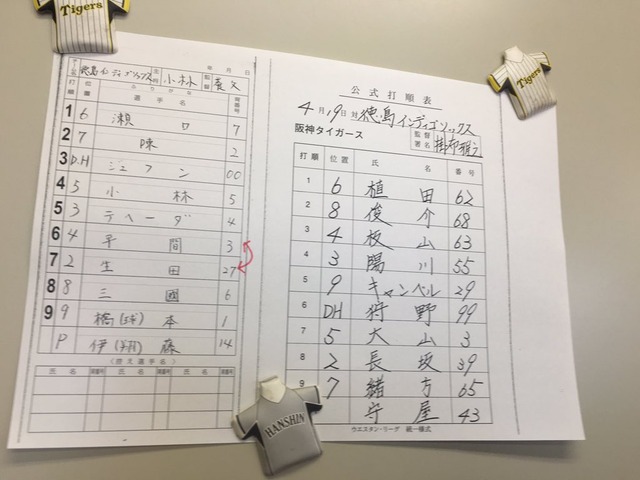 Tigers
Tigers
HANSHIN
チーム名 徳島インディゴソックス 主将 小林 監督 養父
年 月 日
打順 位置 ふりがな 選手名 背番号
1 6 瀬口 7
2 7 陳 2
3 D.H ジェフン 00
4 5 小林 5
5 3 テヘーダ 4
6 4 平間 3
7 2 生田 27
8 8 三國 6
9 9 橋本 1
P 伊藤 14
(控え選手名)
氏名 背番号 氏名 背番号 氏名 背番号
公式打順表
4月19日 対 徳島インディゴソックス
阪神タイガース 監督署名 掛布雅之
打順 位置 氏名 番号
1 6 植田 62
2 8 俊介 68
3 4 板山 63
4 3 陽川 55
5 9 キャンベル 29
6 DH 狩野 99
7 5 大山 3
8 2 長坂 39
9 7 緒方 65
守屋 43
ウエスタン・リーグ 統一様式